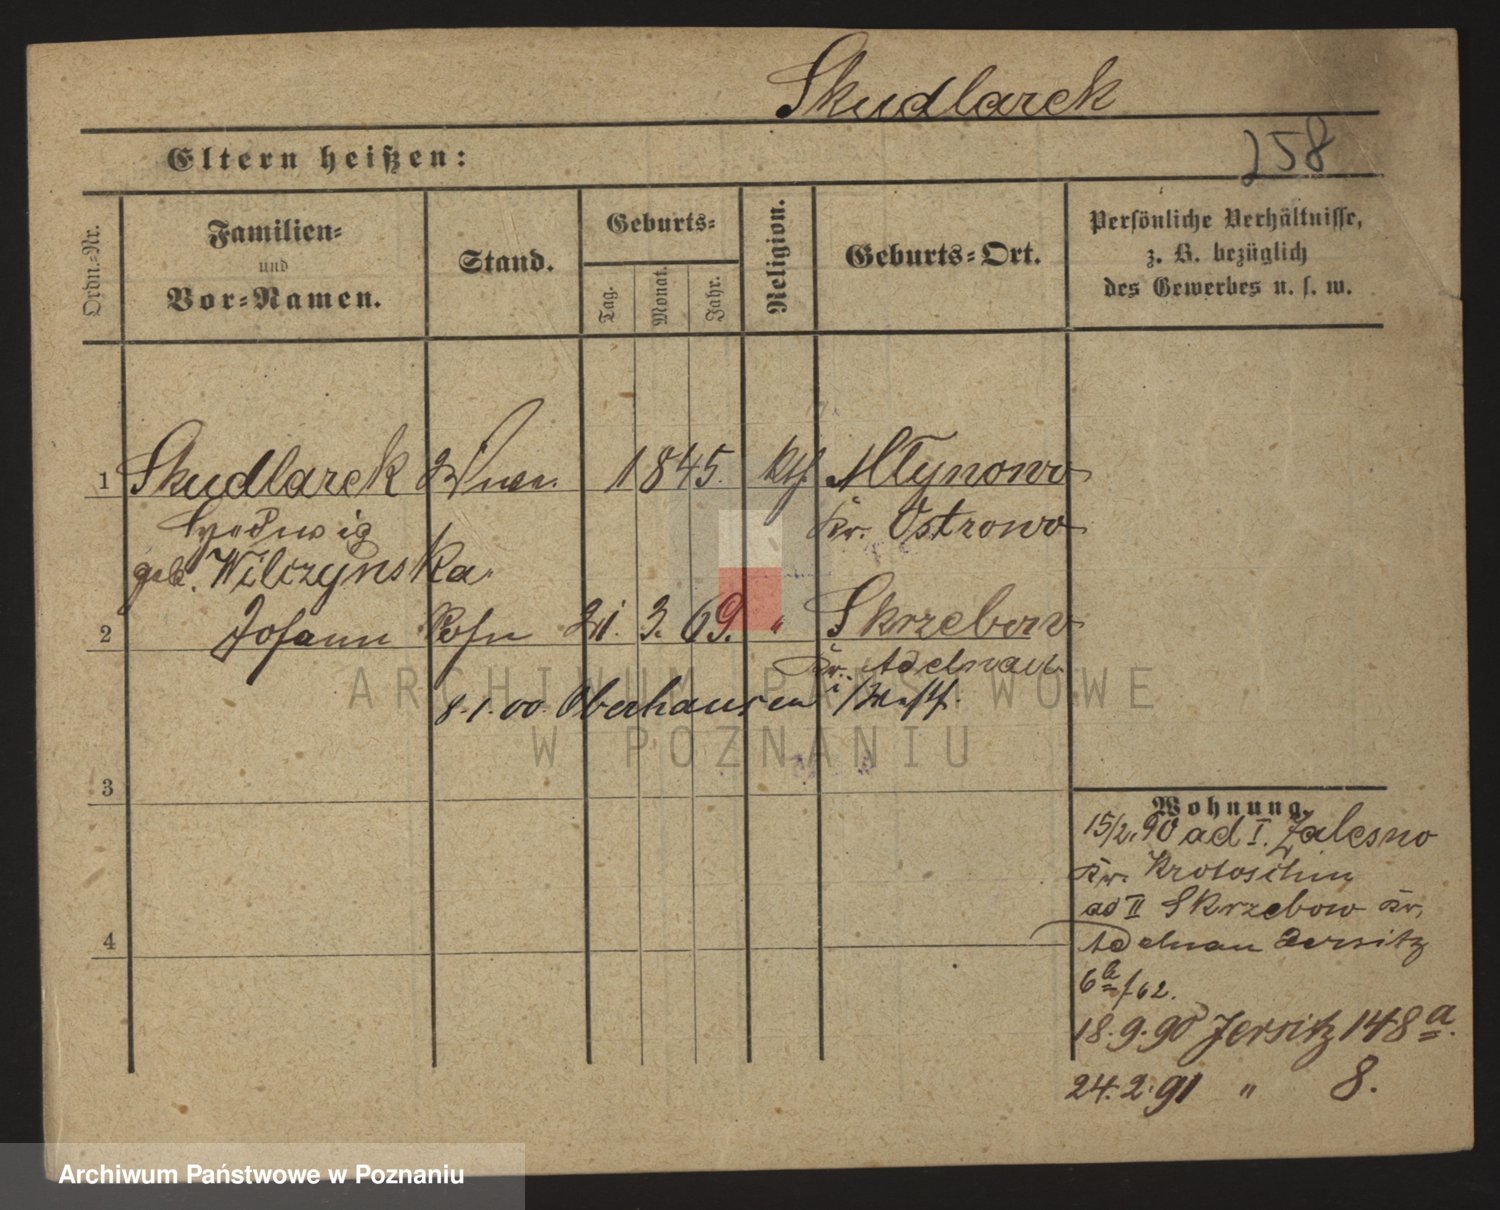 Skudlarek
258
Eltern heißen:
Ordn.-Nr.
Familien-
und
Vor-Namen.
Stand.
Geburts-
Tag.
Monat.
Jahr.
Religion.
Geburts-Ort.
Persönliche Verhältnisse,
z. B. bezüglich
des Gewerbes u. s. w.
1 Skudlarek Wwe. 1845. kth. Młynowo
Hedwig Kr. Ostrowo
geb. Wilczynska
2 Johann Sohn 21. 3. 69. " Skrzebow
Kr. Adelnau
8.1.00 Oberhausen i/Westf.
ARCHIWUM PAŃSTWOWE
W POZNANIU
3
4
Wohnung.
15/2. 90 ad I. Zalesno
Kr. Krotoschin
ad II Skrzebow Kr.
Adelnau Jersitz
62.
18.9.90 Jersitz 148a.
24.2.91 " 8.
Archiwum Państwowe w Poznaniu